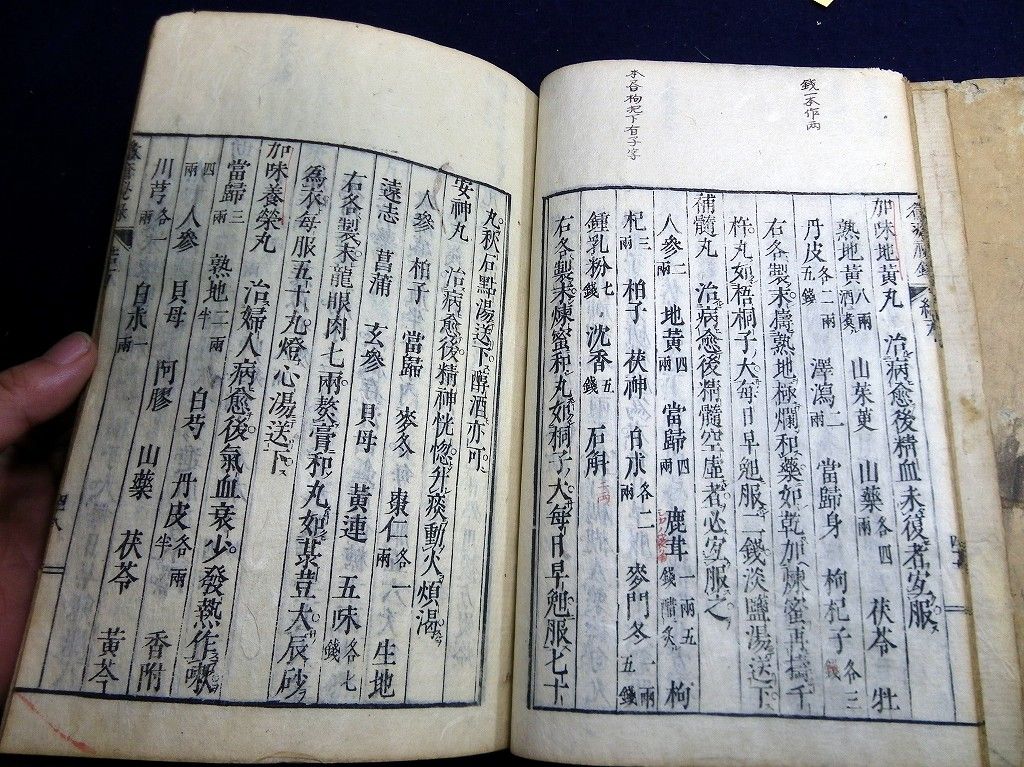 錢一本作兩
本各枸杞下有子字
加味地黄丸 治病愈後精血未復者宜服
熟地黄八兩酒煮 山茱萸 山藥各四兩 茯苓 牡
丹皮各二兩五錢 澤瀉二兩 當歸身 枸杞子各三錢
右各製末 熟地極爛和藥如乾加煉蜜再擣千
杵丸如梧桐子大每日早 服二錢淡鹽湯送下
補髓丸 治病愈後精髓空虚者必宜服之
人參二兩 地黄四兩 當歸四兩 鹿茸一兩五錢醋炙 枸
杞三兩 柏子 茯神 白朮各二兩 麥門冬一兩五錢
鍾乳粉七錢 沈香五錢 石斛二兩
右各製末煉蜜和丸如桐子大每日早 服七十
丸秋石點湯送下醇酒亦可
安神丸 治病愈後精神恍惚升痰動火煩渴
人參 柏子 當歸 麥冬 棗仁各一兩 生地
遠志 菖蒲 玄參 貝母 黄連 五味各七錢
右各製末龍眼肉七兩熬膏和丸如菉荳大辰砂
爲衣每服五十丸燈心湯送下
加味養榮丸 治婦人病愈後氣血衰少發熱作嗽
當歸三兩 熟地二兩半 白芍 丹皮各半兩 香附
四兩 人參 貝母 阿膠 山藥 茯苓 黄芩
川芎各一兩 白朮一兩